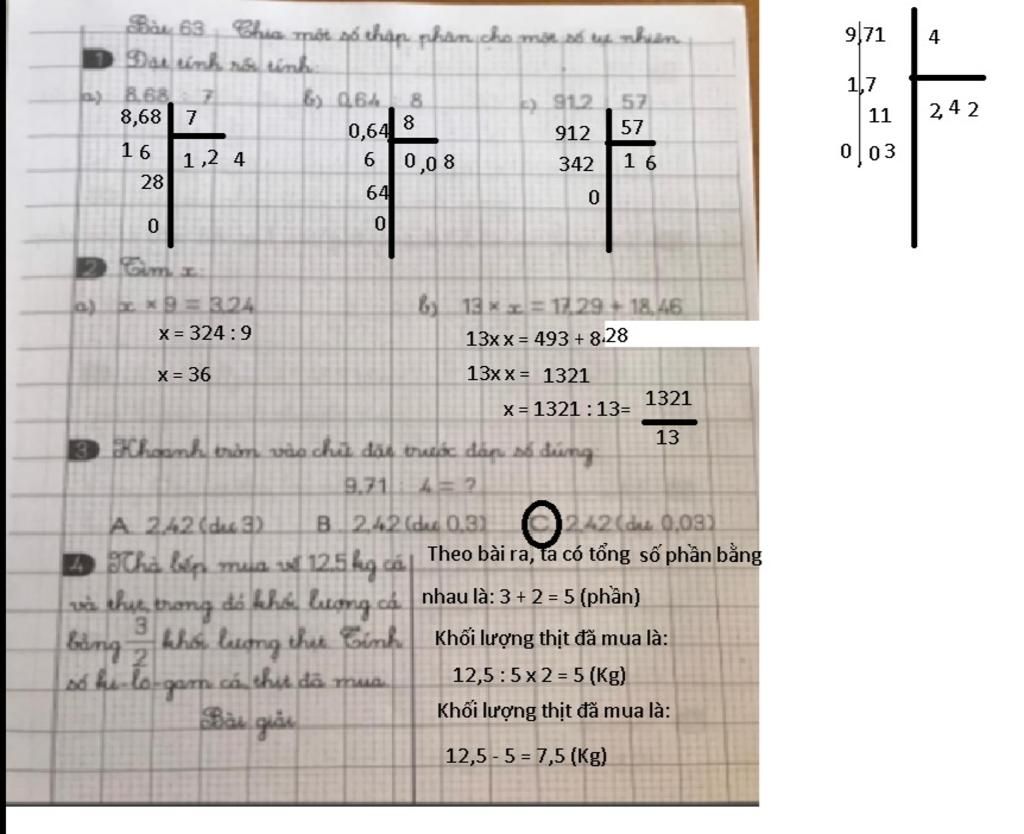 Bài 63 : Chia một số thập phân cho một số tự nhiên
1 Đặt tính rồi tính:
a) 8,68 : 7 b) 0,64 : 8 c) 912 : 57
8,68 7
16 1,2 4
28
0
0,64 8
6 0,0 8
64
0
912 57
342 1 6
0
9,71 4
1,7 2,4 2
11
0,03
2 Tìm x:
a) x × 9 = 3,24 b) 13 × x = 17,29 + 18,46
x = 324 : 9 13x x = 493 + 8.28
x = 36 13x x = 1321
x = 1321 : 13= 1321
13
3 Khoanh tròn vào chữ đặt trước đáp số đúng:
9,71 : 4 = ?
A. 2,42 (dư 3) B. 2,42 (dư 0,3) C. 2,42 (dư 0,03)
4 Nhà bếp mua về 12,5 kg cá
và thịt, trong đó khối lượng cá
bằng 3/2 khối lượng thịt. Tính
số ki-lô-gam cá, thịt đã mua.
Bài giải
Theo bài ra, ta có tổng số phần bằng
nhau là: 3 + 2 = 5 (phần)
Khối lượng thịt đã mua là:
12,5 : 5 x 2 = 5 (Kg)
Khối lượng thịt đã mua là:
12,5 - 5 = 7,5 (Kg)